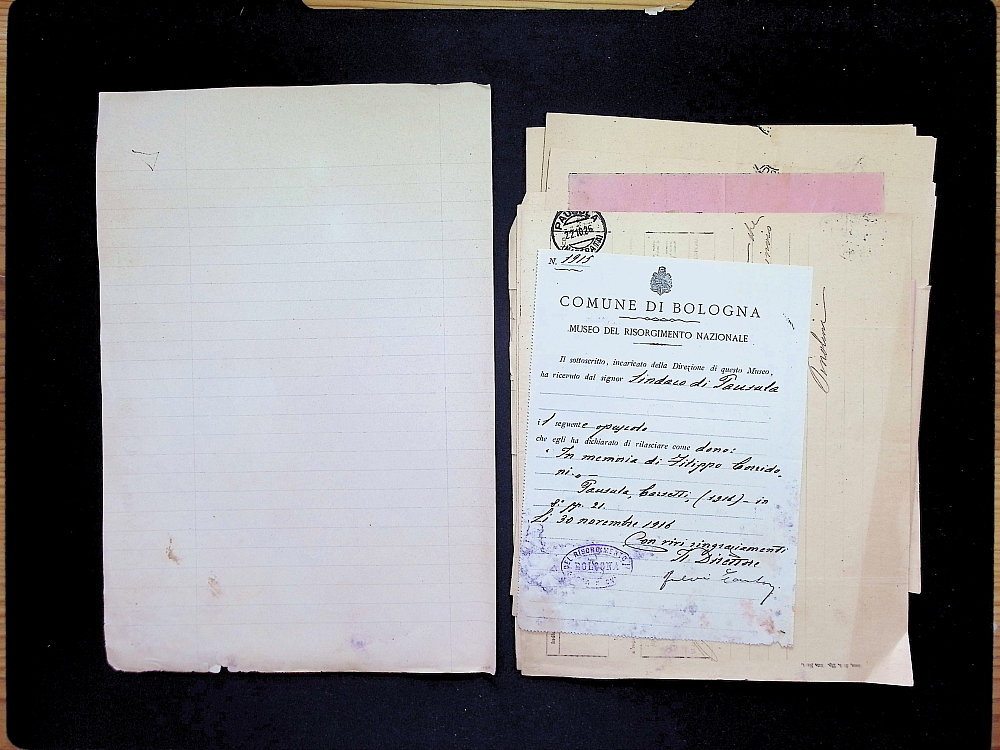 PAUSULA
22.10.26
N. 1915
COMUNE DI BOLOGNA
MUSEO DEL RISORGIMENTO NAZIONALE
Il sottoscritto, incaricato della Direzione di questo Museo,
ha ricevuto dal signor Sindaco di Pausula
il seguente opuscolo
che egli ha dichiarato di rilasciare come dono:
"In memoria di Filippo Corrido-
ni.
Pausula, Carsetti, (1916) - in
8° pp. 21.
Li 30 novembre 1916
Con vivi ringraziamenti
Il Direttore
DEL RISORGIMENTO
BOLOGNA